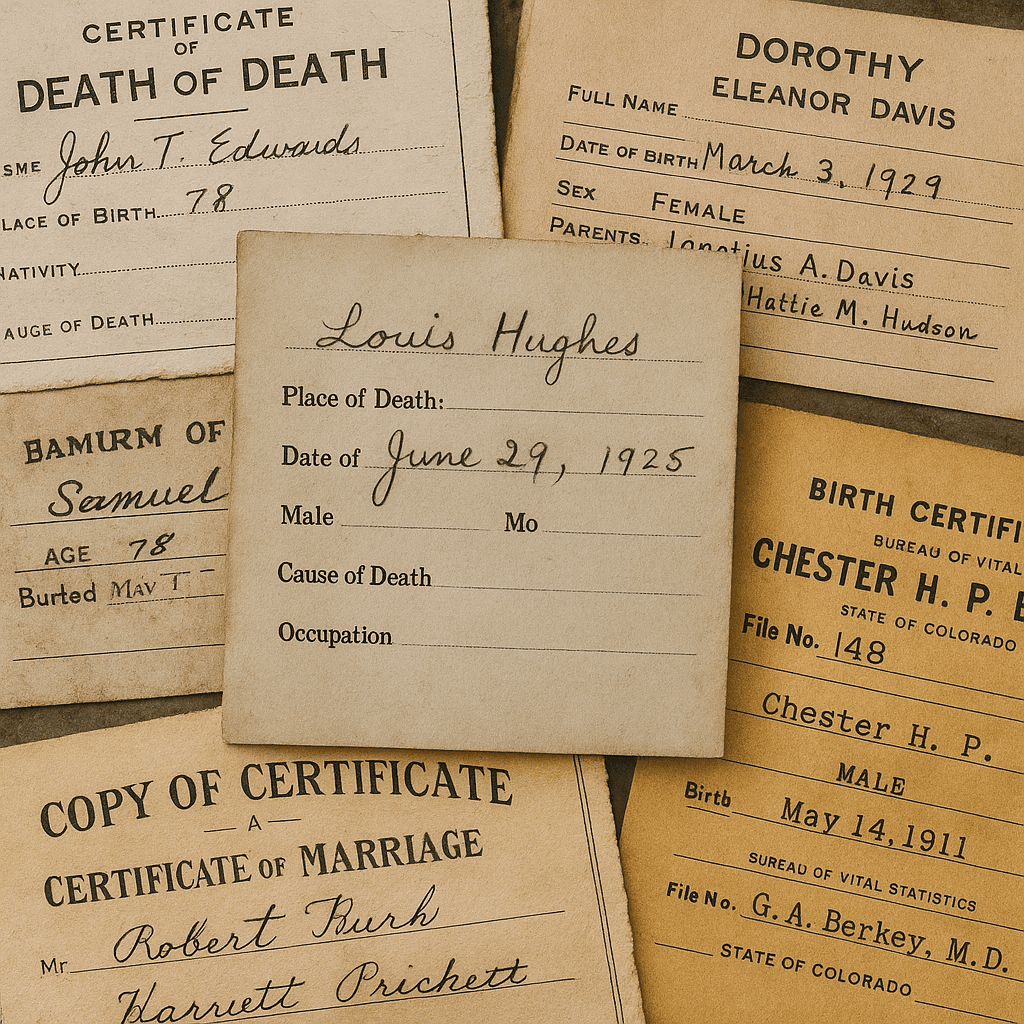 CERTIFICATE
OF
DEATH OF DEATH
SME John T. Edwards
LACE OF BIRTH 78
NATIVITY
AUGE OF DEATH
DOROTHY
ELEANOR DAVIS
FULL NAME
DATE OF BIRTH March 3, 1929
SEX FEMALE
PARENTS Ignatius A. Davis
Hattie M. Hudson
Louis Hughes
Place of Death:
Date of June 29, 1925
Male Mo
Cause of Death
Occupation
BAMURM OF
Samuel
AGE 78
Burted MAY 1
BIRTH CERTIFI
BUREAU OF VITAL
CHESTER H. P. E
STATE OF COLORADO
File No. 148
Chester H. P.
MALE
Birth May 14, 1911
SUREAU OF VITAL STATISTICS
File No. G. A. Berkey, M.D.
STATE OF COLORADO
COPY OF CERTIFICATE
— A —
CERTIFICATE OF MARRIAGE
Mr Robert Burh
Harruett Prichett